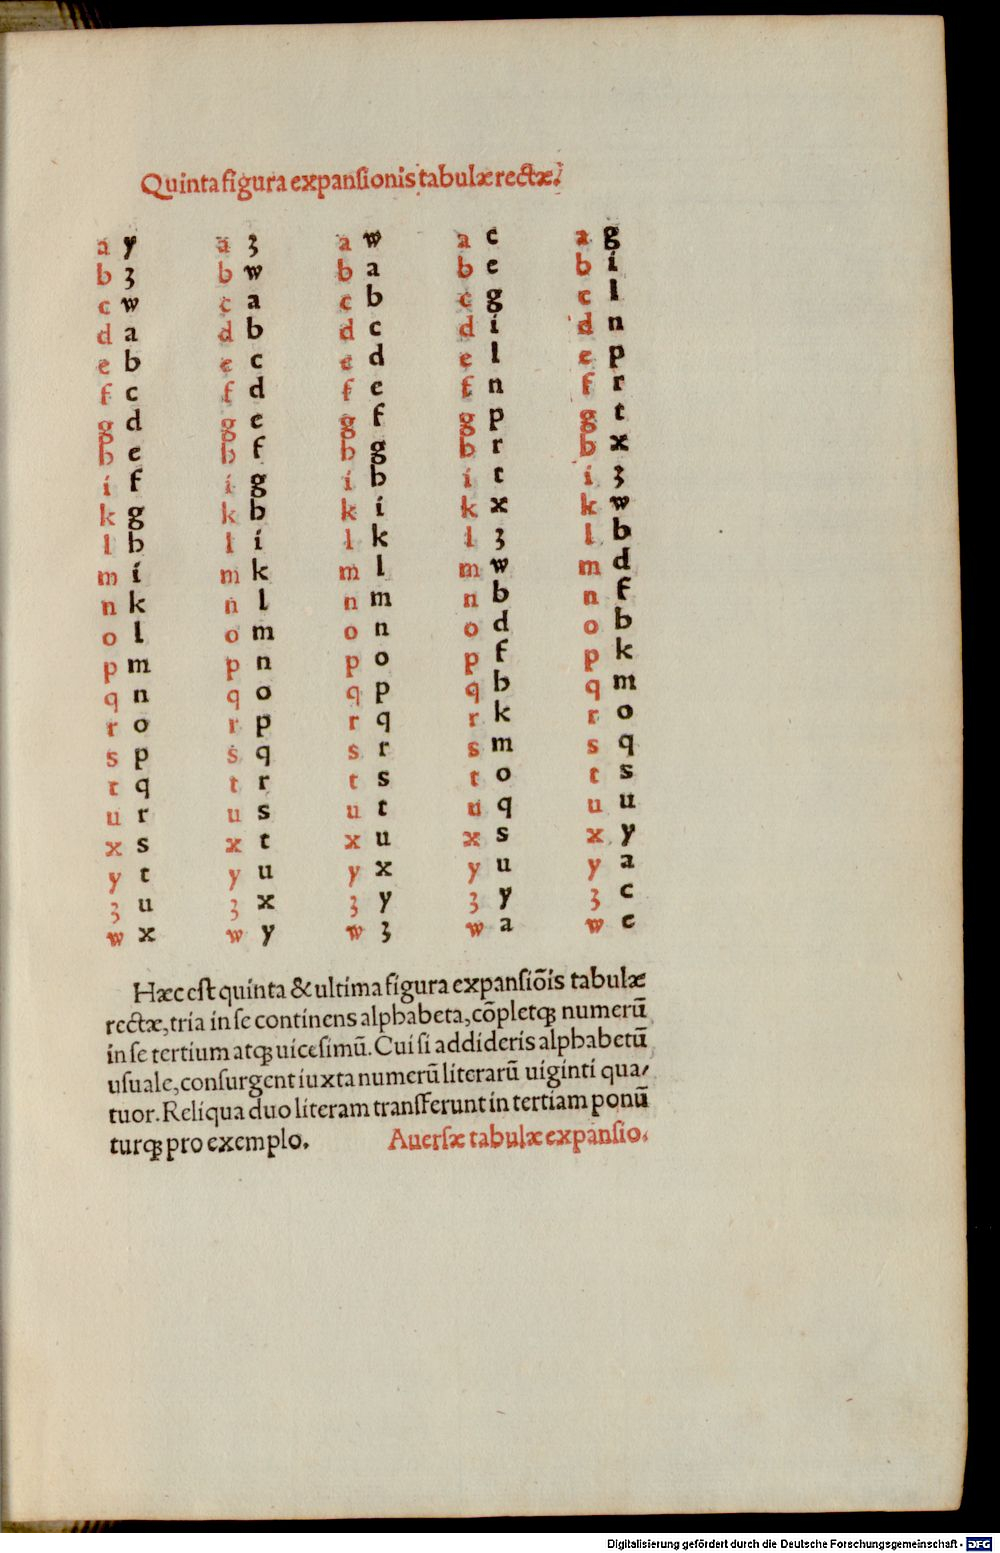 Quinta figura expansionis tabulæ rectæ.
a y a ʒ a w a c a g
b ʒ b w b a b e b i
c w c a c b c g c l
d a d b d c d i d n
e b e c e d e l e p
f c f d f e f n f r
g d g e g f g p g t
h e h f h g h r h x
i f i g i h i t i ʒ
k g k h k i k x k w
l h l i l k l ʒ l b
m i m k m l m w m d
n k n l n m n b n f
o l o m o n o d o h
p m p n p o p f p k
q n q o q p q h q m
r o r p r q r k r o
s p s q s r s m s q
t q t r t s t o t s
u r u s u t u q u u
x s x t x u x s x y
y t y u y x y u y a
ʒ u ʒ x ʒ y ʒ y ʒ c
w x w y w ʒ w a w e
Hæc eſt quinta & ultima figura expanſiōis tabulæ
rectæ, tria in ſe continens alphabeta, cōpletqꝫ numerū
in ſe tertium atqꝫ uiceſimū. Cui ſi addideris alphabetū
uſuale, conſurgent iuxta numerū literarū uiginti qua/
tuor. Reliqua duo literam tranſferunt in tertiam ponū
turqꝫ pro exemplo. Auerſæ tabulæ expanſio.
Digitalisierung gefördert durch die Deutsche Forschungsgemeinschaft - DFG